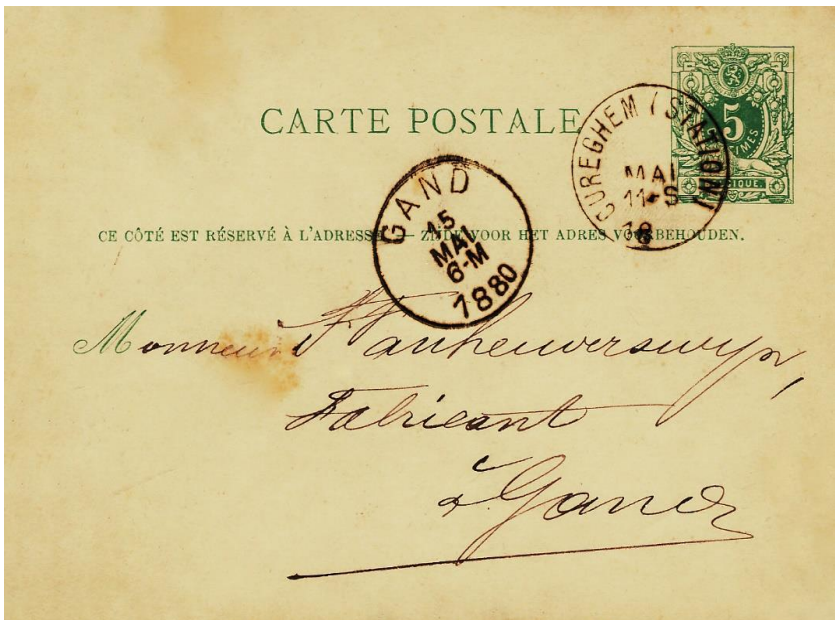 CARTE POSTALE
5
CENTIMES
BELGIQUE.
CUREGHEM (STATION)
MAI
11-S
18
GAND
15
MAI
6-M
1880
CE CÔTÉ EST RÉSERVÉ À L'ADRESSE. — ZIJDE VOOR HET ADRES VOORBEHOUDEN.
Monsieur
Fabricant
à Gand